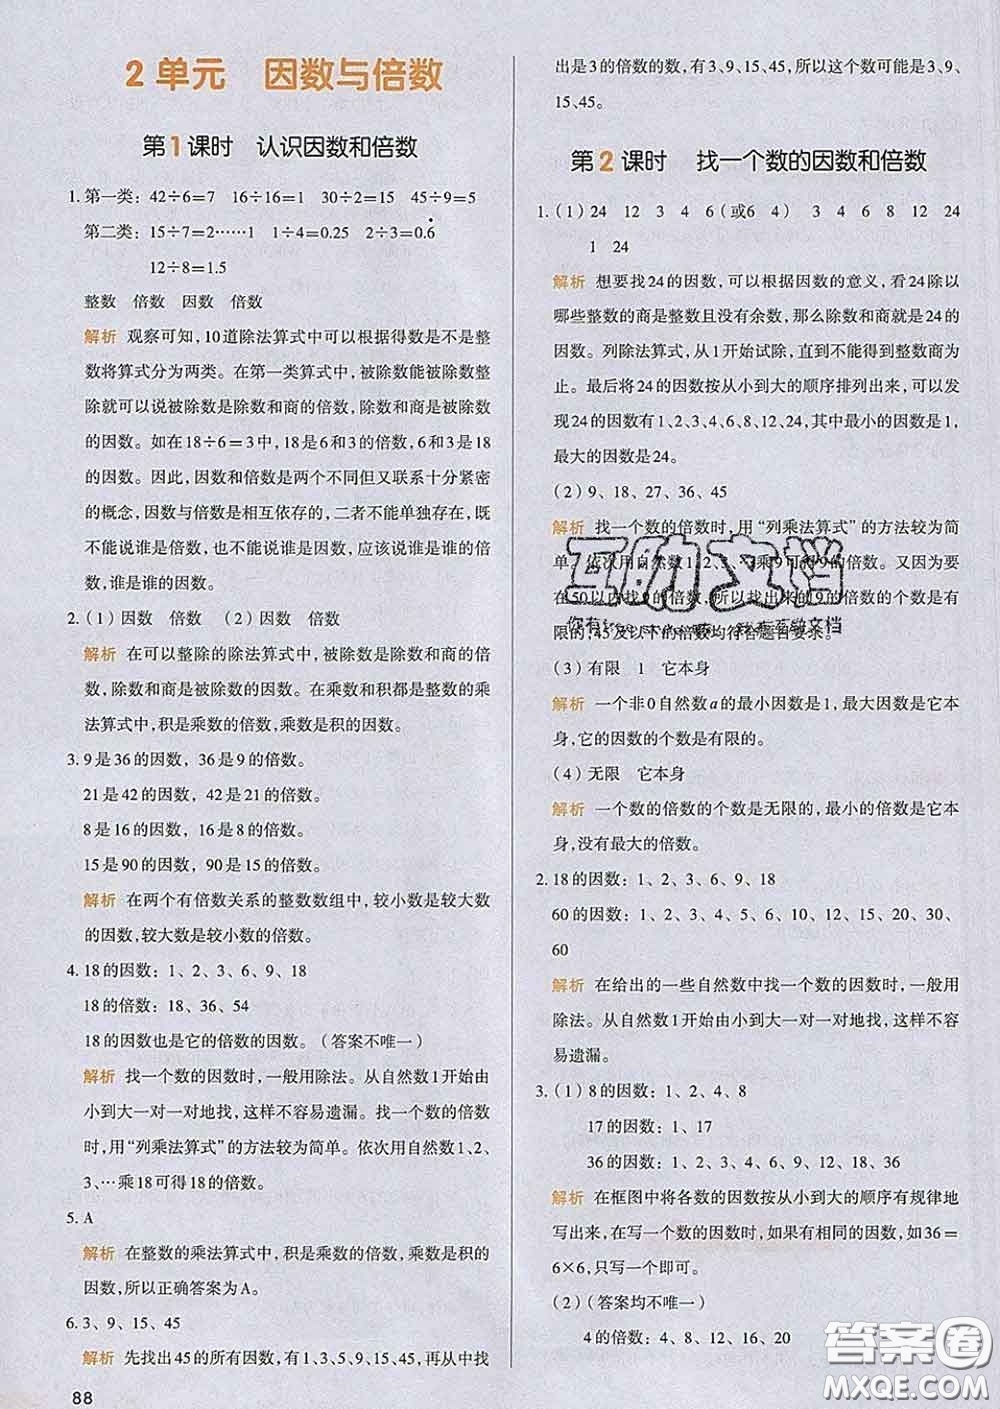 2 单元 因数与倍数
第1课时 认识因数和倍数
1. 第一类：42÷6=7 16÷16=1 30÷2=15 45÷9=5
第二类：15÷7=2……1 1÷4=0.25 2÷3=0.6̇
12÷8=1.5
整数 倍数 因数 倍数
解析 观察可知，10道除法算式中可以根据得数是不是整
数将算式分为两类。在第一类算式中，被除数能被除数整
除就可以说被除数是除数和商的倍数，除数和商是被除数
的因数。如在18÷6=3中，18是6和3的倍数，6和3是18
的因数。因此，因数和倍数是两个不同但又联系十分紧密
的概念，因数与倍数是相互依存的，二者不能单独存在，既
不能说谁是倍数，也不能说谁是因数，应该说谁是谁的倍
数，谁是谁的因数。
2. (1) 因数 倍数 (2) 因数 倍数
解析 在可以整除的除法算式中，被除数是除数和商的倍
数，除数和商是被除数的因数。在乘数和积都是整数的乘
法算式中，积是乘数的倍数，乘数是积的因数。
3. 9是36的因数，36是9的倍数。
21是42的因数，42是21的倍数。
8是16的因数，16是8的倍数。
15是90的因数，90是15的倍数。
解析 在两个有倍数关系的整数数组中，较小数是较大数
的因数，较大数是较小数的倍数。
4. 18的因数：1、2、3、6、9、18
18的倍数：18、36、54
18的因数也是它的倍数的因数。(答案不唯一)
解析 找一个数的因数时，一般用除法。从自然数1开始由
小到大一对一对地找，这样不容易遗漏。找一个数的倍数
时，用“列乘法算式”的方法较为简单。依次用自然数1、2、
3、…乘18可得18的倍数。
5. A
解析 在整数的乘法算式中，积是乘数的倍数，乘数是积的
因数，所以正确答案为A。
6. 3、9、15、45
解析 先找出45的所有因数，有1、3、5、9、15、45，再从中找
88
出是3的倍数的数，有3、9、15、45，所以这个数可能是3、9、
15、45。
第2课时 找一个数的因数和倍数
1. (1) 24 12 3 4 6(或6 4) 3 4 6 8 12 24
1 24
解析 想要找24的因数，可以根据因数的意义，看24除以
哪些整数的商是整数且没有余数，那么除数和商就是24的
因数。列除法算式，从1开始试除，直到不能得到整数商为
止。最后将24的因数按从小到大的顺序排列出来，可以发
现24的因数有1、2、3、4、6、8、12、24，其中最小的因数是1，
最大的因数是24。
(2) 9、18、27、36、45
解析 找一个数的倍数时，用“列乘法算式”的方法较为简
单。依次用自然数1、2、3、…乘9可得9的倍数。又因为要
在50以内找9的倍数，所以找出来的9的倍数的个数是有
限的，45及以下的倍数均符合题目要求。
互助文档
(3) 有限 1 它本身
解析 一个非0自然数a的最小因数是1，最大因数是它本
身，它的因数的个数是有限的。
(4) 无限 它本身
解析 一个数的倍数的个数是无限的，最小的倍数是它本
身，没有最大的倍数。
2. 18的因数：1、2、3、6、9、18
60的因数：1、2、3、4、5、6、10、12、15、20、30、
60
解析 在给出的一些自然数中找一个数的因数时，一般用
除法。从自然数1开始由小到大一对一对地找，这样不容
易遗漏。
3. (1) 8的因数：1、2、4、8
17的因数：1、17
36的因数：1、2、3、4、6、9、12、18、36
解析 在框图中将各数的因数按从小到大的顺序有规律地
写出来，在写一个数的因数时，如果有相同的因数，如36=
6×6，只写一个即可。
(2) (答案均不唯一)
4的倍数：4、8、12、16、20
答案圈
MXQE.COM